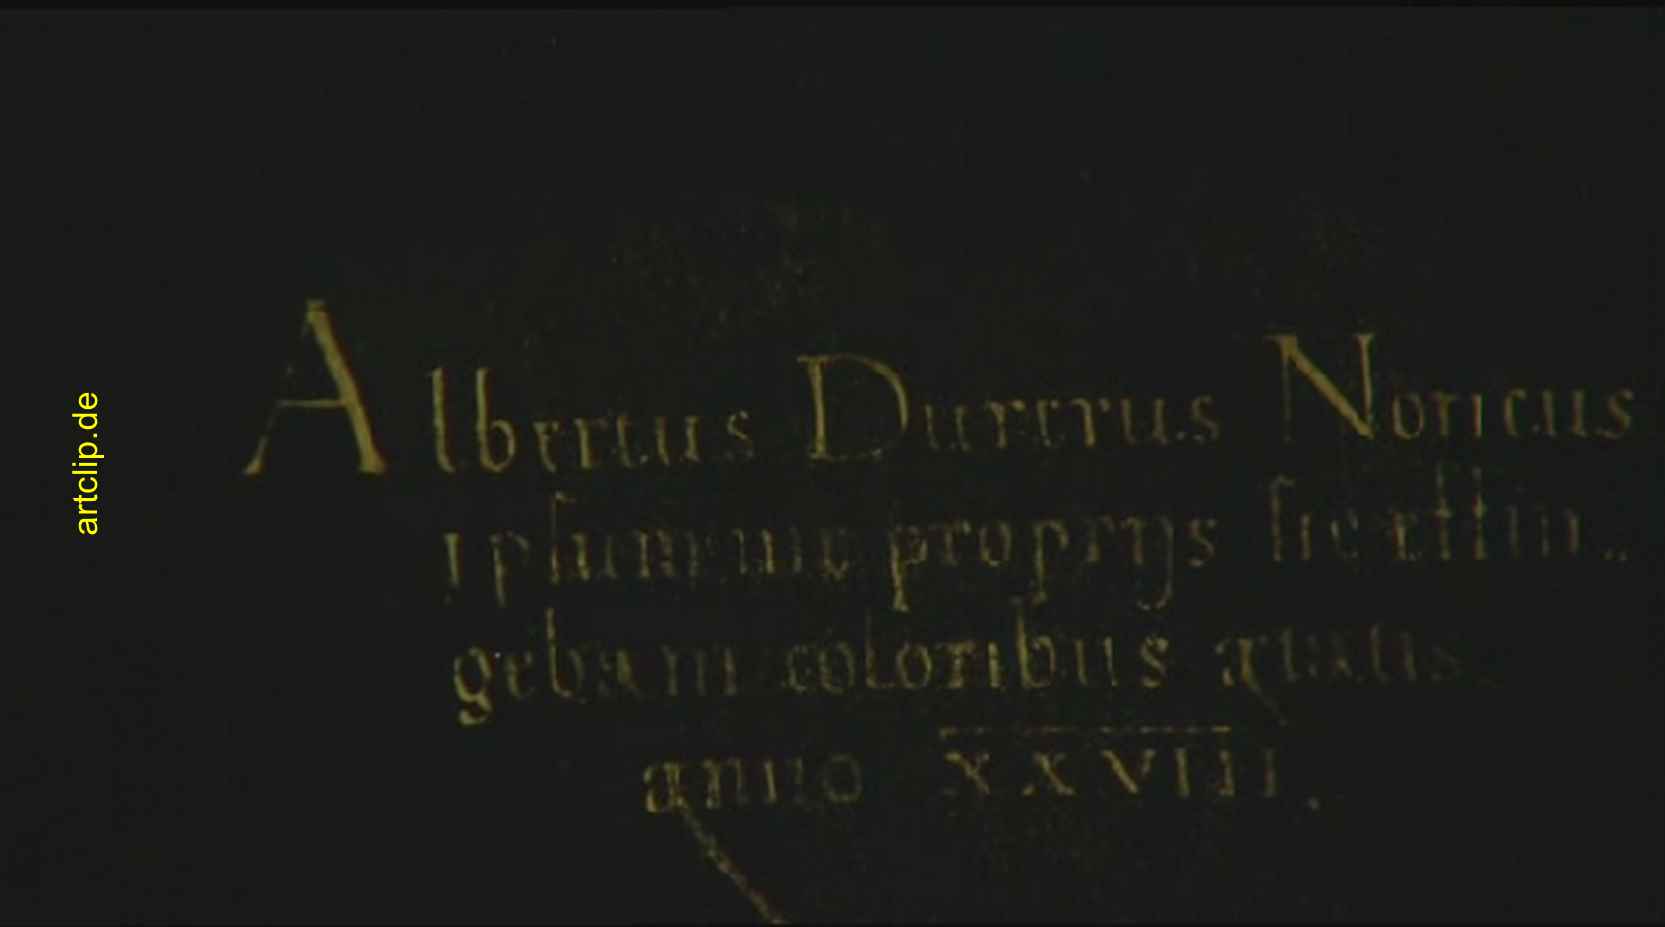 artclip.de
Albertus Durerus Noricus
ipsum me proprijs sic effin..
gebam coloribus ætatis
anno XXVIII.